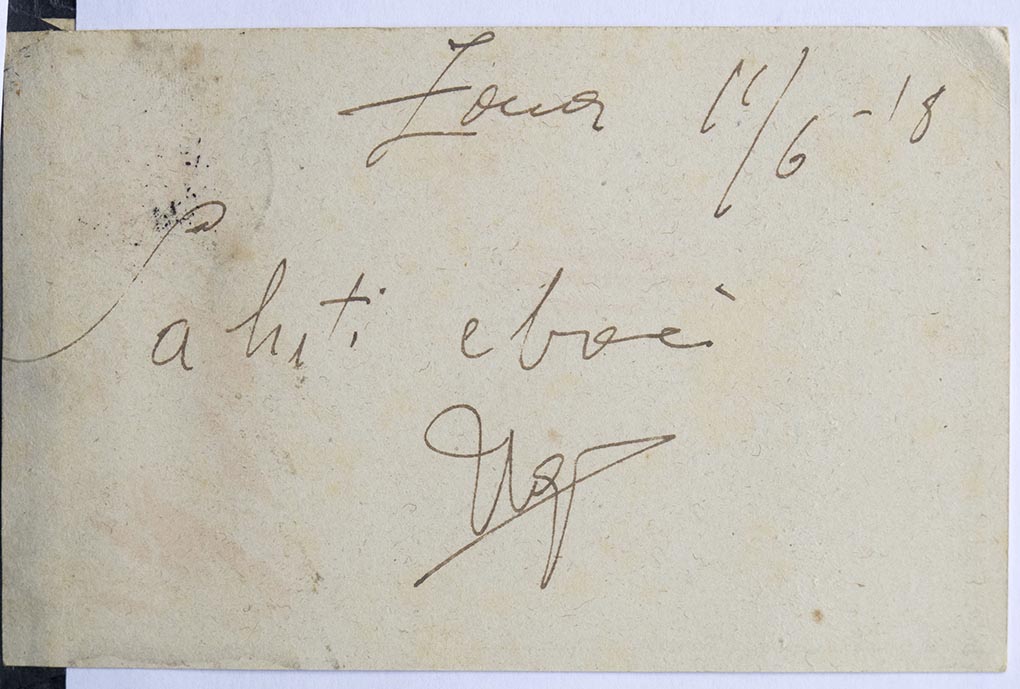 Zona 11/6-18
Saluti e baci